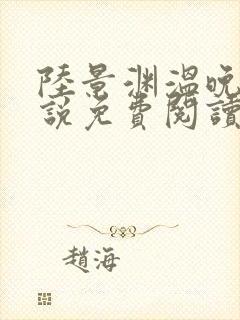 陸景渊溫晚
說免費閱讀
趙海